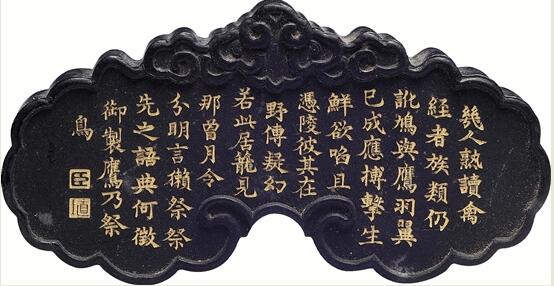 幾人熟讀禽
經者族類仍
訛鳩與鷹羽翼
已成應搏擊生
鮮欲啗且
憑陵彼其在
野傳疑幻
若此居籠見
那曾月令
分明言獺祭祭
先之語典何徵
御製鷹乃祭
鳥